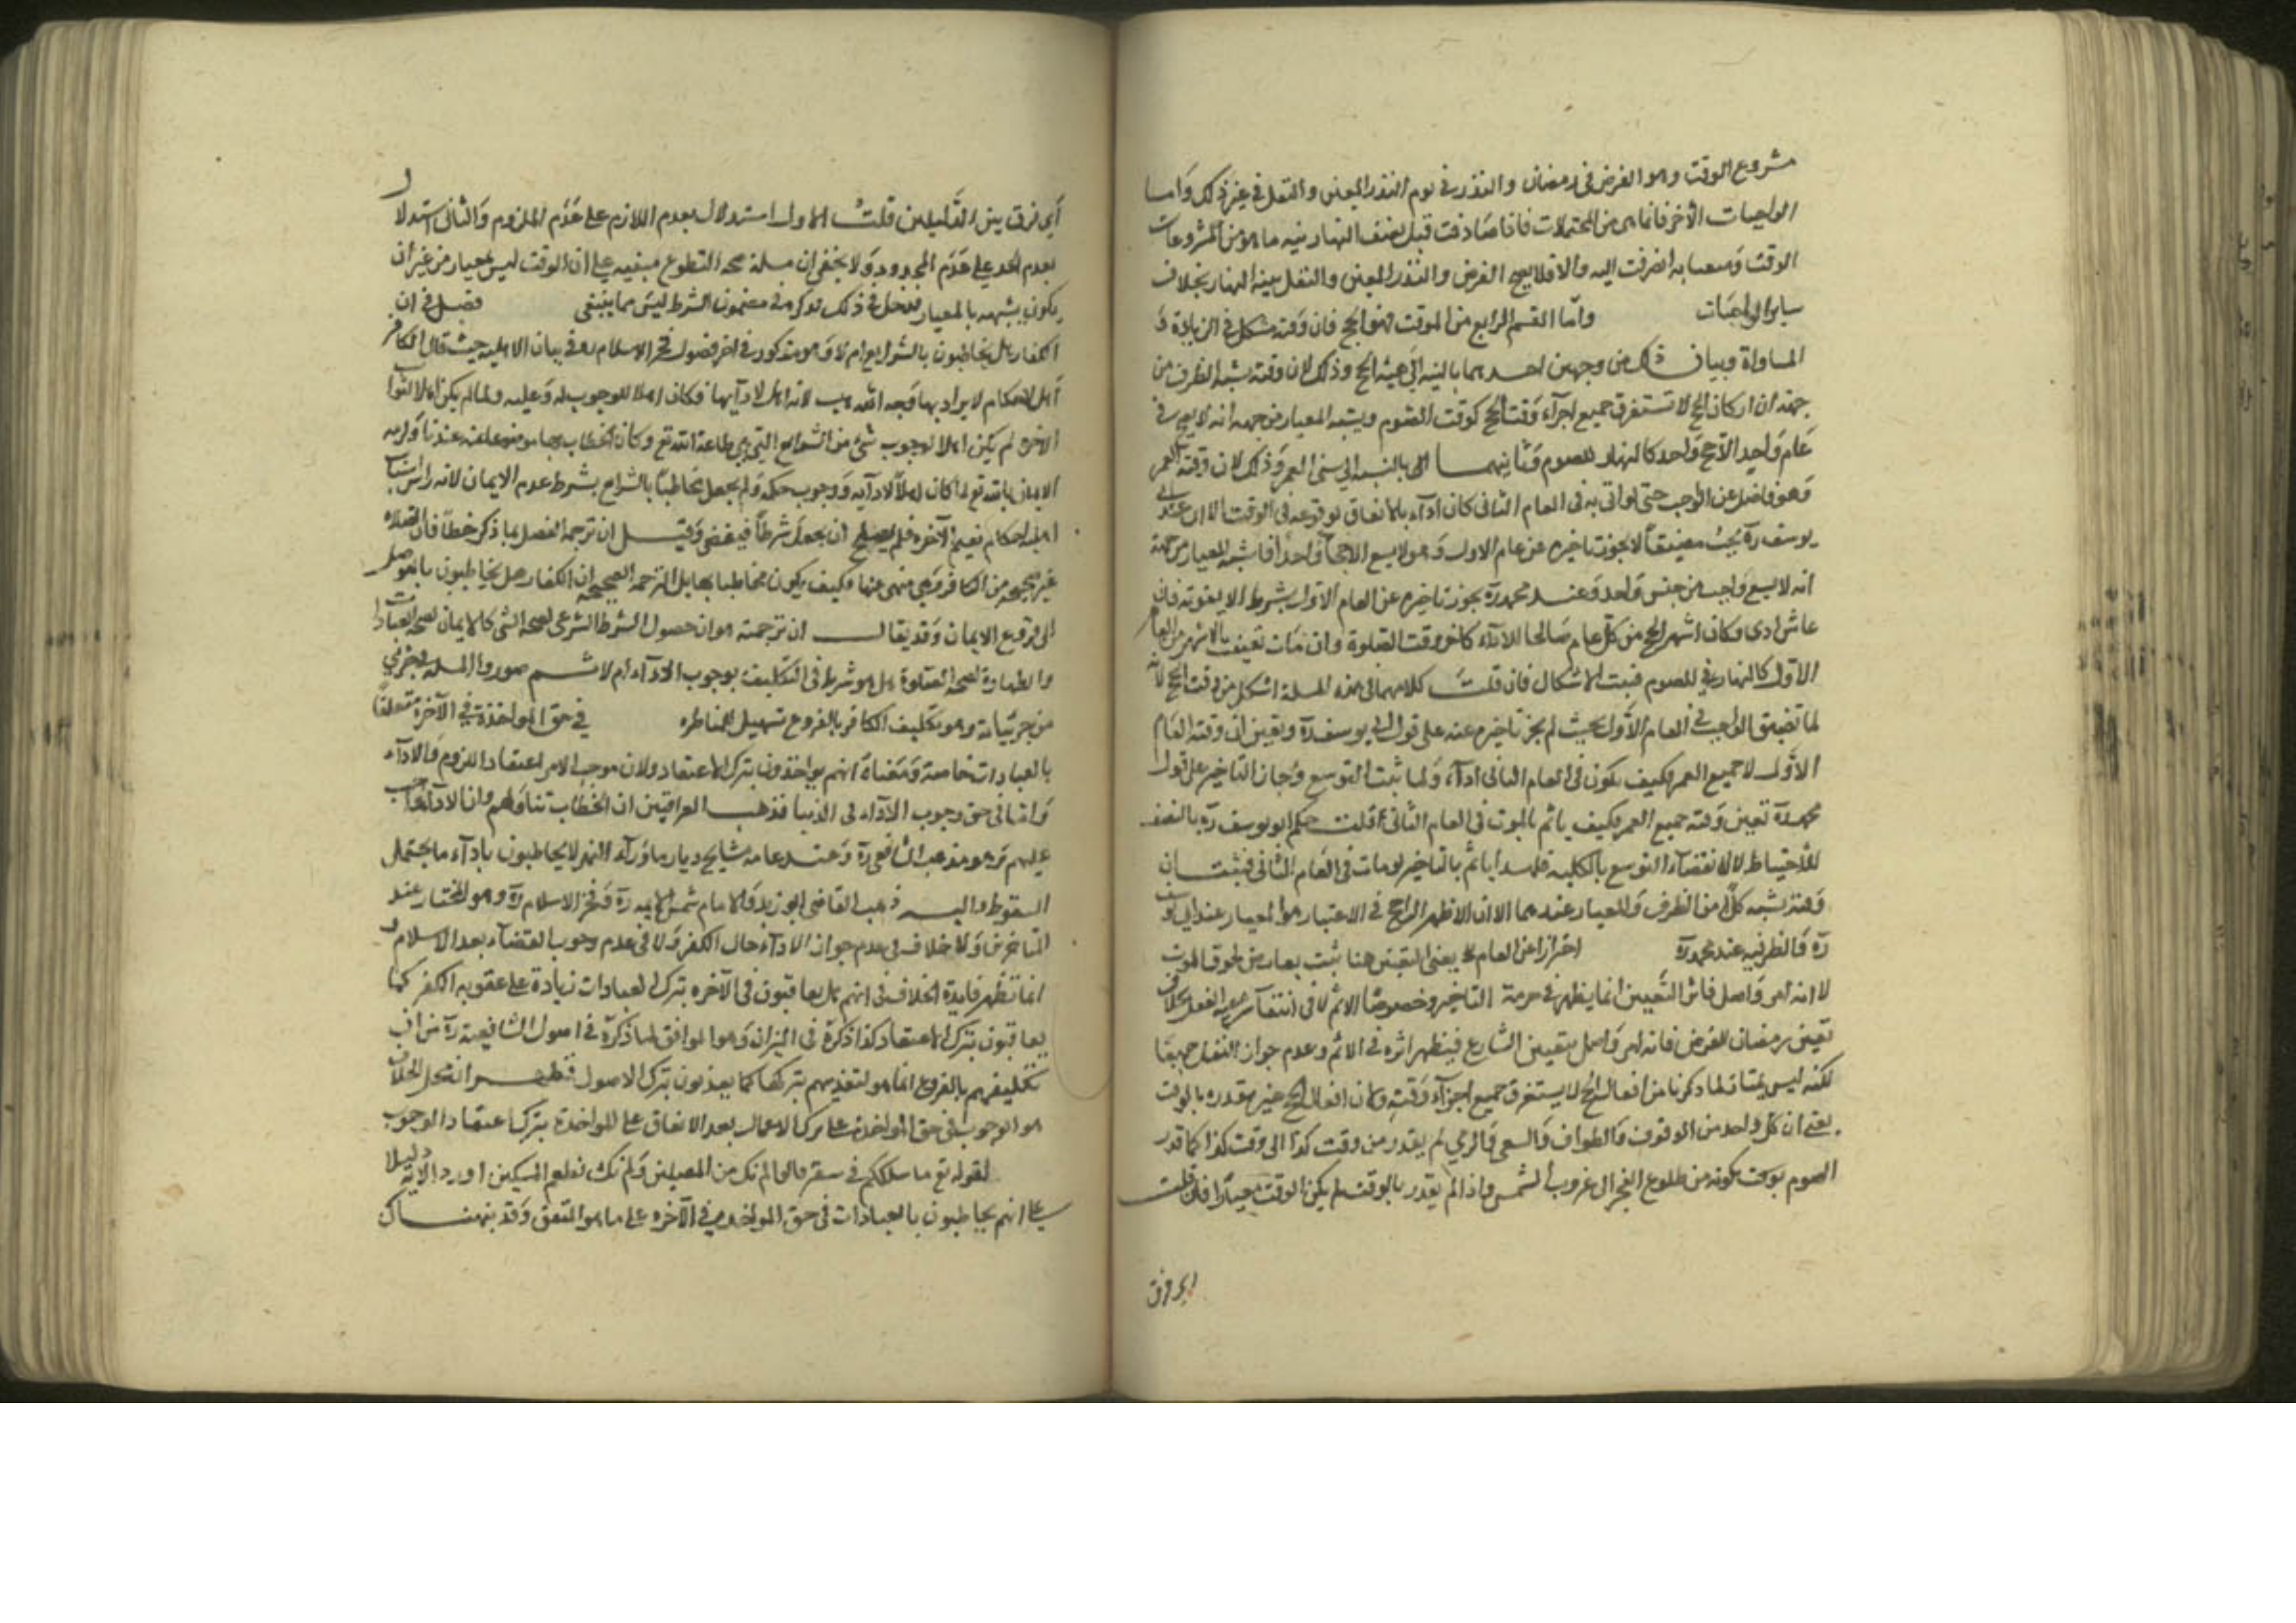 مشروع الوقت وهو الفرض فى رمضان والنذر فى يوم النذر المعين والنفل فى غير ذلك وَاما
الواجبات الأخر فانما هى من المحتملات فاذا صَادفت قبل نصف النهار نيه ما هو من المشروعات
الوقت انصرفت اليه والا فلا يصح الفرض والنذر المعين والنفل بنية النهار بخلاف
ساير الواجبَات وَاما القسم الرابع من الموقت فهو الحج فان وَقته مشكل فى الزيادة وَ
المساواة وبيان ذلك من وجهين احدهما بالنسبة الى سنة الحج وذلك لان وقته يشبه الظرف من
جهة ان اركان الحج لا تستغرق جميع اجزآء وَقت الحج كوقت الصَوم ويشبه المعيار من جهة انه لا يصح فى
عَام وَاحد الا حج وَاحد كالنهار للصوم وَثانيهما بالنسبة الى سنى العمر وَذلك لان وقته العمر
وَهو فاضل عن الواجب حتى لو اتى به فى العام الثانى كان ادآء بالاتفاق لوقوعه فى الوقت الا ان عند ابى
يوسف رَه يجب مضيقاً لا يجوز تاخيره عن عام الاول وَهو لا يسع الا حجاً وَاحداً فاشبه المعيار من جهة
انه لا يسع وَاجبين من جنس وَاحد وَعند محمد رَه يجوز تاخيره عن العام الاول بشرط الا يفوته فان
عاش ادى وكان اشهر الحج من كل عام صَالحا للادآء كاخر وقت الصلوة وان مَات تعينت الاشهر من العام
الاوّل كالنهار للصوم فثبت الاشكال فان قلتَ كلامهما فى هذه المسلة اشكل من وقت الحج لانه
لما تضيق الواجب فى العام الأوّل بحيث لم يجز تاخيره عنه على قول ابى يوسف رَه وتعين ان وقته العَام
الأوّل لا جميع العمر فكيف يكون فى العام الثانى ادآء وَلما ثبت التوسع وجَاز التاخير على قول
محمد رَه تعين وَقته جميع العمر فكيف ياثم بالموت فى العام الثانى قلت حكم ابو يوسف رَه بالتضيق
للاحتياط لا لانقضآء التوسع بالكلية فلهذا ياثم بالتاخير لو مات فى العَام الثانى فثبت ان
وَقته يشبه كلاً من الظرف وَالمعيار عندهما الا ان الاظهر الراجح فى الاعتبار هو المعيار عند ابى يوسف
رَه وَالظرفيه عند محمد رَه احترازا عن العام يعنى التعين هنا ثبت بعارض خوف الموت
لا انه امر وَاصل فاثر التعيين انما يظهر فى حرمة التاخير وخصوصًا الاثم لا فى انتفآء شرعية النفل بخلاف
تعين رمضان للفرض فانه امر وَاصل بتعيين الشارع فيظهر اثره فى الاثم وعدم جواز النفل جميعًا
لكنه ليس لما ذكرنا من افعال الحج لا يستغرق جميع اجزآء وَقته وكان افعال الحج غير مقدره بالوقت
يعنى ان كل واحد من الوقوف والطواف وَالسعى وَالرمى لم يقدر من وقت كذا الى وقت كذا كما قدر
الصوم بوقت كونه من طلوع الفجر الى غروب الشمس واذا لم يقدر بالوقت لم يكن الوقت معيارًا فان قلت
اى فرق
أى فرق بين الدَّليلين قلتُ الاول استدلال بعدم اللازم على عَدَم الملزوم وَالثانى استدلال
بعدم الحد على عَدَم المحدود وَلا يخفى ان مسلة صحة التطوع مبنيه على ان الوقت ليس بمعيار من غير ان
يكون يشبهه بالمعيار مدخل فى ذلك فذكره فى مضمون الشرط ليسَ مما ينبغى فصل فى ان
الكفار هل يخاطبون بالشرايع ام لا وَهو مذكور فى اخر فصول فخر الاسلام ره فى بيان الاهلية حيث قال الكافر
أهل لاحكام لا يراد بها وَجه الله لانه اهل لادآيها فكان اهلا للوجوب له وَعليه ولما لم يكن اهلا لثواب
الاخره لم يكن اهلا لوجوب شئ من الشرايع التى هى طاعة الله تع وكان الخطاب بها موضوعا عنه عندنا ولزمه
الايمان بالله تع لما كان اهلاً لادآيه وَوجوب حكمه وَلم يجعل مخاطبًا بالشرايع بشرط عدم الايمان لانه راس اسباب
اهلية احكام نعيم الآخره فلم يصلح ان يجعل شرطاً وَقيل ان ترجمة الفصل بما ذكر خطأ فان الصلاه
غير صحيحه من الكافر وَهى منهى عنها فكيف يكون مخاطبا بها بل الترجمة الصحيحة ان الكفار هل يخاطبون
الى فروع الايمان وَقد يقال ان ترجمته هو ان حصول الشرط الشرعى لصحة الشئ كالايمان لصحة العبادات
والطهارة لصحة الصَّلوة هل هو شرط فى التكليف بوجوب الادآء ام لا ثم صوروا المسلة فى جزئى
من جزئياته وهو تكليف الكافر بالفروع تسهيلا للمناظره فى حق المواخذة فى الآخرة متعلقًا
بالعبادات خاصة وَمَعناه انهم يواخذون بترك الاعتقاد ولان موجب الامر اعتقاد اللزوم وَالادآء
وَاما فى حق وجوب الآدآء فى الدنيا فذهب العراقيين ان الخطَاب تناوَلهم وان الادآء واجب
عليهم وَهو مذهب الشافعى رَه وَعند عامة مشايخ ديار ماوَرآء النهر لا يخاطبون بادآء ما يحتمل
السقوط واليه ذهب القاضى ابو زيد وَالامام شمس الايمه رَه وَفخر الاسلام رَه وهو المختار عند
المتاخرين وَلا خلاف فى عدم جواز الادآء حال الكفر وَلا فى عدم وجوب القضآء بعد الاسلام و
انما تظهر فايدة الخلاف فى انهم هل يعاقبون فى الآخره بترك العبادات زيادة على عقوبه الكفر كما
يعاقبون بترك الاعتقاد كذا ذكرهُ فى الميزان وَهو الموافق لما ذكرهُ فى اصول الشافعية رَه من ان
تكليفهم بالفروع انما هو لتعذيبهم بتركها كما يعذبون بترك الاصول فظهر ان محل الخلاف
هو الوجوب فى حق المواخذة على ترك الاعمال بعد الاتفاق على المواخذة بترك اعتقاد الوجوب
لقوله تع ما سلككم فى سقر قالوا لم نك من المصلين وَلم نك نطعم المسكين اورد الآية دليلا
على انهم يخاطبون بالعبادات فى حق المواخذه فى الآخره على ما هو المتفق وَقد